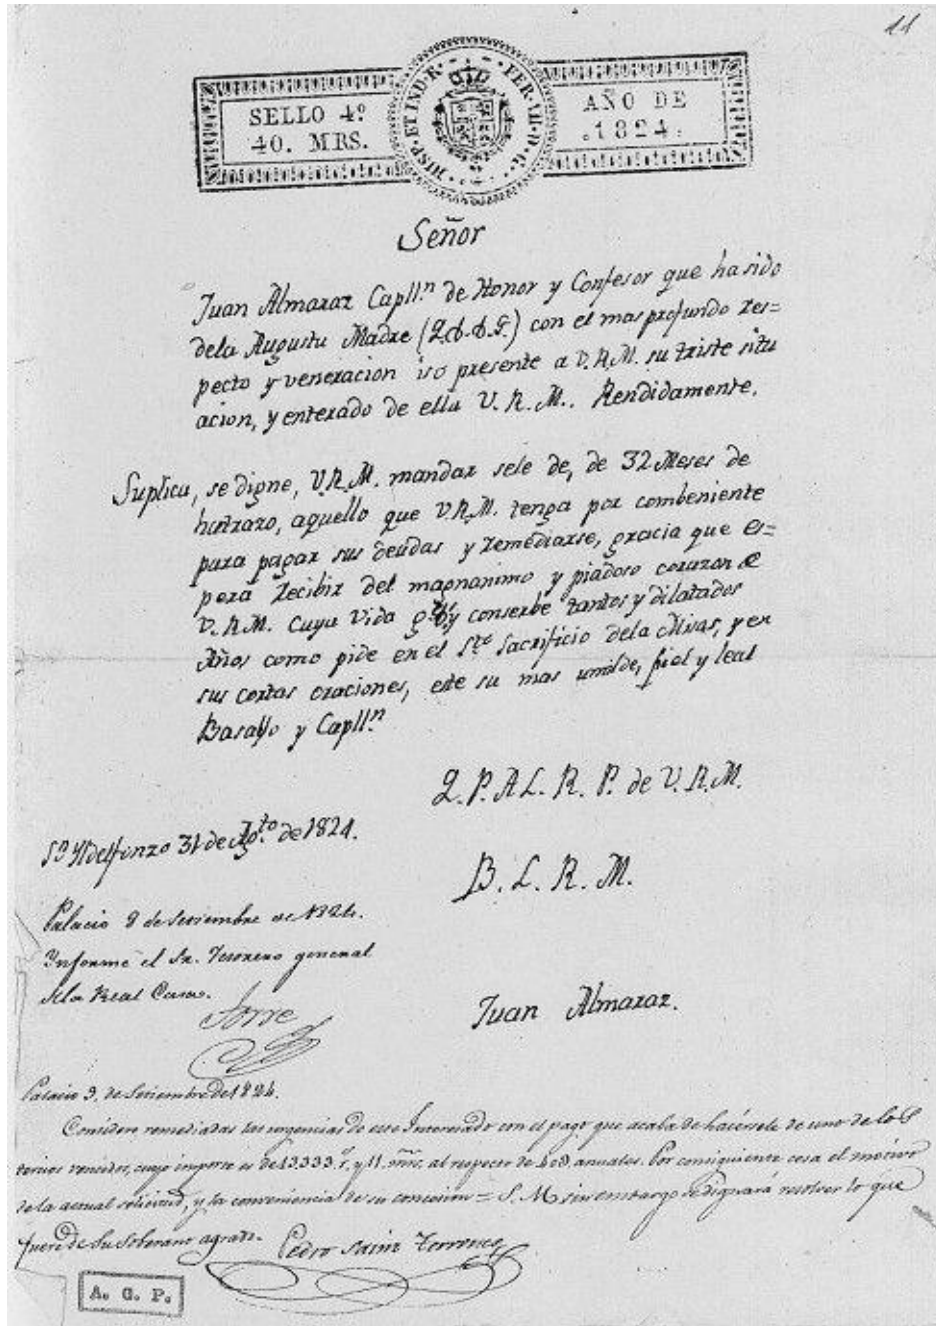 11
SELLO 4º
40. MRS.
HISP. ET IND. R. FER. VII. D. G.
AÑO DE
1824.
Señor
Juan Almaraz Capll.n de Honor y Confesor que ha sido
dela Augusta Madre (Q.d.D.G.) con el mas profundo res=
pecto y veneracion iso presente a V.R.M. su triste situ
acion, y enterado de ella V. R. M. Rendidamente.
Suplica, se digne, V.R.M. mandar sele de, de 32 Meses de
hatrazo, aquello que V.R.M. tenga por combeniente
para pagar sus deudas y remediarse, gracia que es=
pera recibir del magnanimo y piadoso corazon de
V.R.M. cuya vida y conserbe tantos y dilatados
Años como pide en el S.to Sacrificio dela Misas, y en
sus cortas oraciones, este su mas umilde, fiel y leal
Basallo y Capll.n
Q. P. A L. R. P. de V. R. M.
Sn Yldefonzo 31 de Ag.to de 1824.
B. L. R. M.
Palacio 2 de Setiembre de 1824.
Informe el Sr. Tesorero general
dela Real Casa.
Juan Almaraz.
Palacio 9, de Setiembre de 1824.
Considero remediadas las urgencias de este Interesado con el pago que acaba de hacersele de uno de los
tercios vencidos, cuyo importe es de 13333 r.s y 11 mrs. al respecto de 40@ anuales. Por consiguiente cesa el motivo
de la actual solicitud, y la conveniencia de su concesion = S. M. sin embargo se dignará resolver lo que
fuere de su Soberano agrado.
Pedro Sainz
A. G. P.